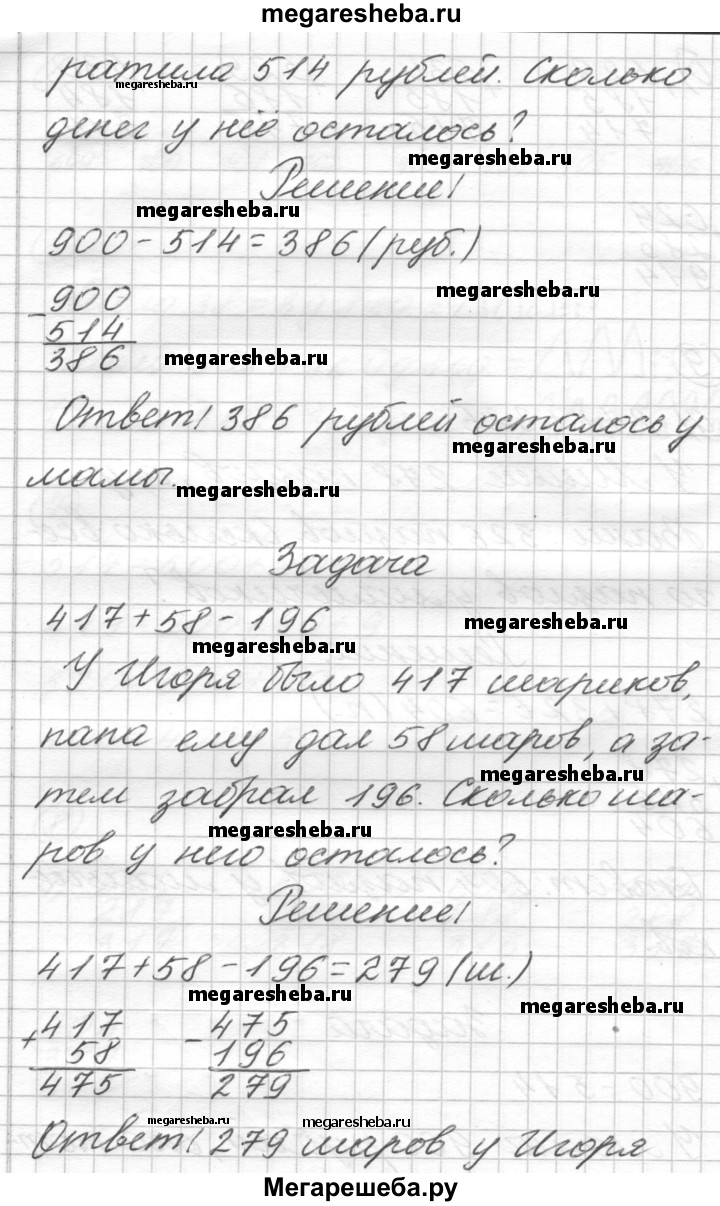 megaresheba.ru
ратила 514 рублей. Сколько
megaresheba.ru
денег у неё осталось?
megaresheba.ru
Решение!
megaresheba.ru
900-514=386(руб.)
megaresheba.ru
- 900
514
386
megaresheba.ru
Ответ! 386 рублей осталось у
megaresheba.ru
мамы.
megaresheba.ru
Задача
417+58-196
megaresheba.ru
megaresheba.ru
У Игоря было 417 шариков,
папа ему дал 58 шаров, а за-
megaresheba.ru
тем забрал 196. Сколько ша-
megaresheba.ru
ров у него осталось?
Решение!
417+58-196=279(ш.)
megaresheba.ru
megaresheba.ru
+ 417 - 475
58 196
475 279
megaresheba.ru megaresheba.ru
Ответ! 279 шаров у Игоря
Мегарешеба.ру